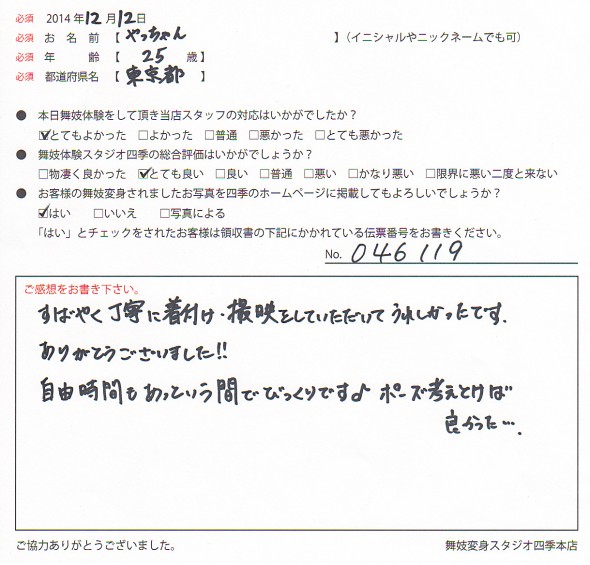 必須 2014年12月12日
必須 お名前【 やっちゃん 】(イニシャルやニックネームでも可)
必須 年齢【 25 歳】
必須 都道府県名【 東京都 】
● 本日舞妓体験をして頂き当店スタッフの対応はいかがでしたか?
☑とてもよかった □よかった □普通 □悪かった □とても悪かった
● 舞妓体験スタジオ四季の総合評価はいかがでしょうか?
□物凄く良かった ☑とても良い □良い □普通 □悪い □かなり悪い □限界に悪い二度と来ない
● お客様の舞妓変身されましたお写真を四季のホームページに掲載してもよろしいでしょうか?
☑はい □いいえ □写真による
「はい」とチェックをされたお客様は領収書の下記にかかれている伝票番号をお書きください。
No. 046119
ご感想をお書き下さい。
すばやく丁寧に着付け・撮映をしていただいてうれしかったです.
ありがとうございました!!
自由時間もあっという間でびっくりです♪ ポーズ考えとけば
良かった….
ご協力ありがとうございました。
舞妓変身スタジオ四季本店